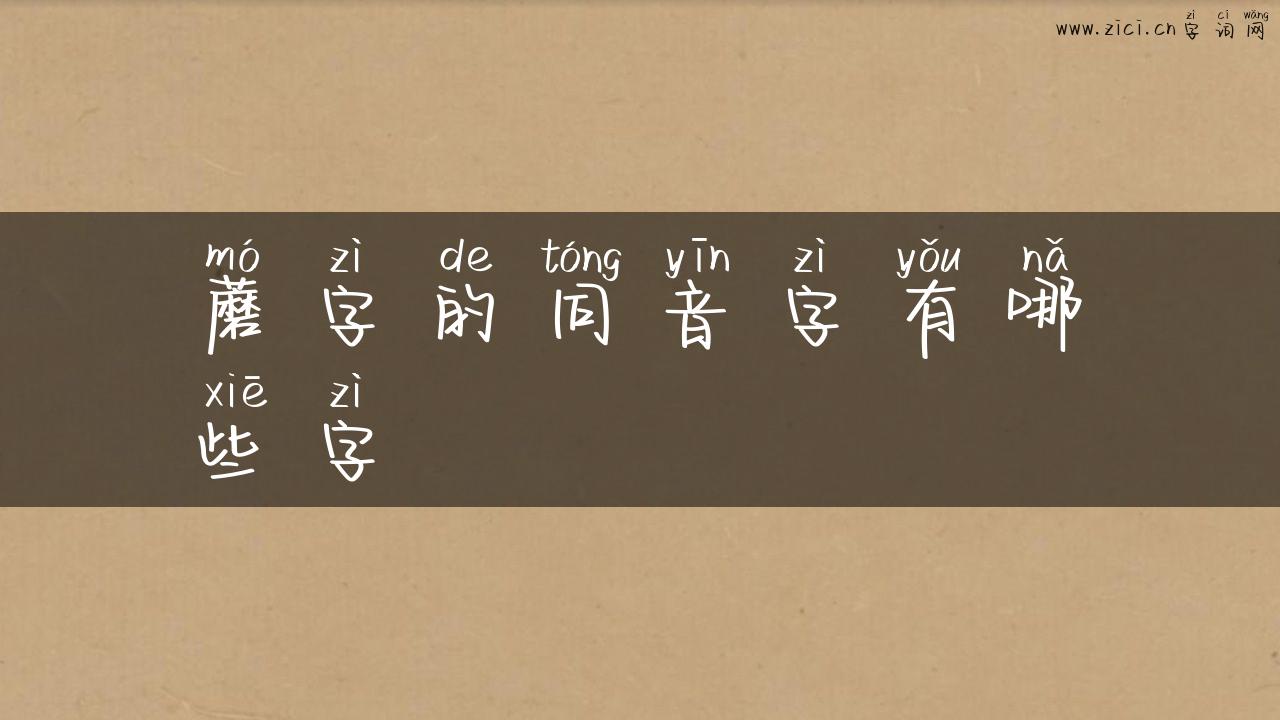 zì cí wǎng
www.zici.cn 字 词 网
mó zì de tóng yīn zì yǒu nǎ
蘑 字 的 同 音 字 有 哪
xiē zì
些 字